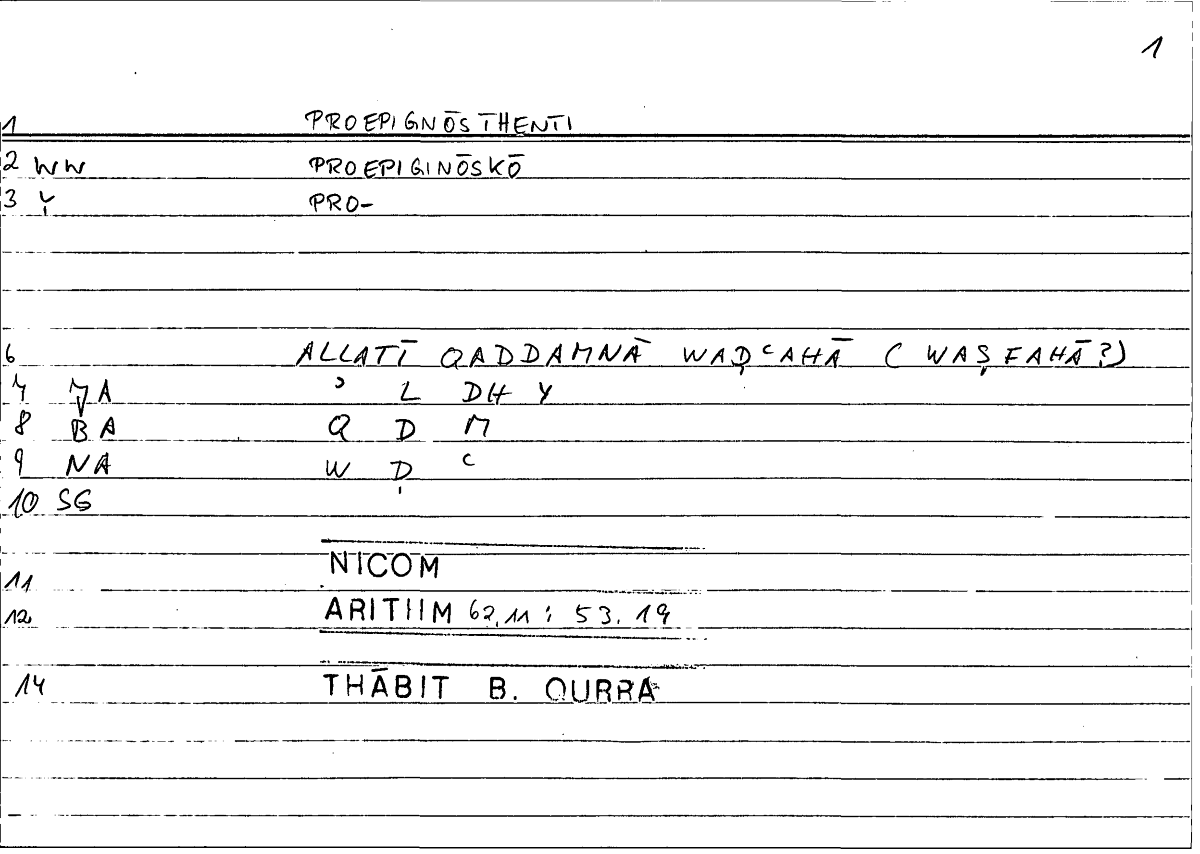 1
1 PROEPIGNŌSTHENTI
2 WW PROEPIGINŌSKŌ
3 Ỵ PRO-
6 ALLATĪ QADDAMNĀ WAḌʿAHĀ (WAṢFAHĀ?)
7 JA ʾ L DH Y
8 BA Q D M
9 NA W Ḍ ʿ
10 SG
11 NICOM
12 ARITIIM 62,11 : 53.19
14 THĀBIT B. QURRA